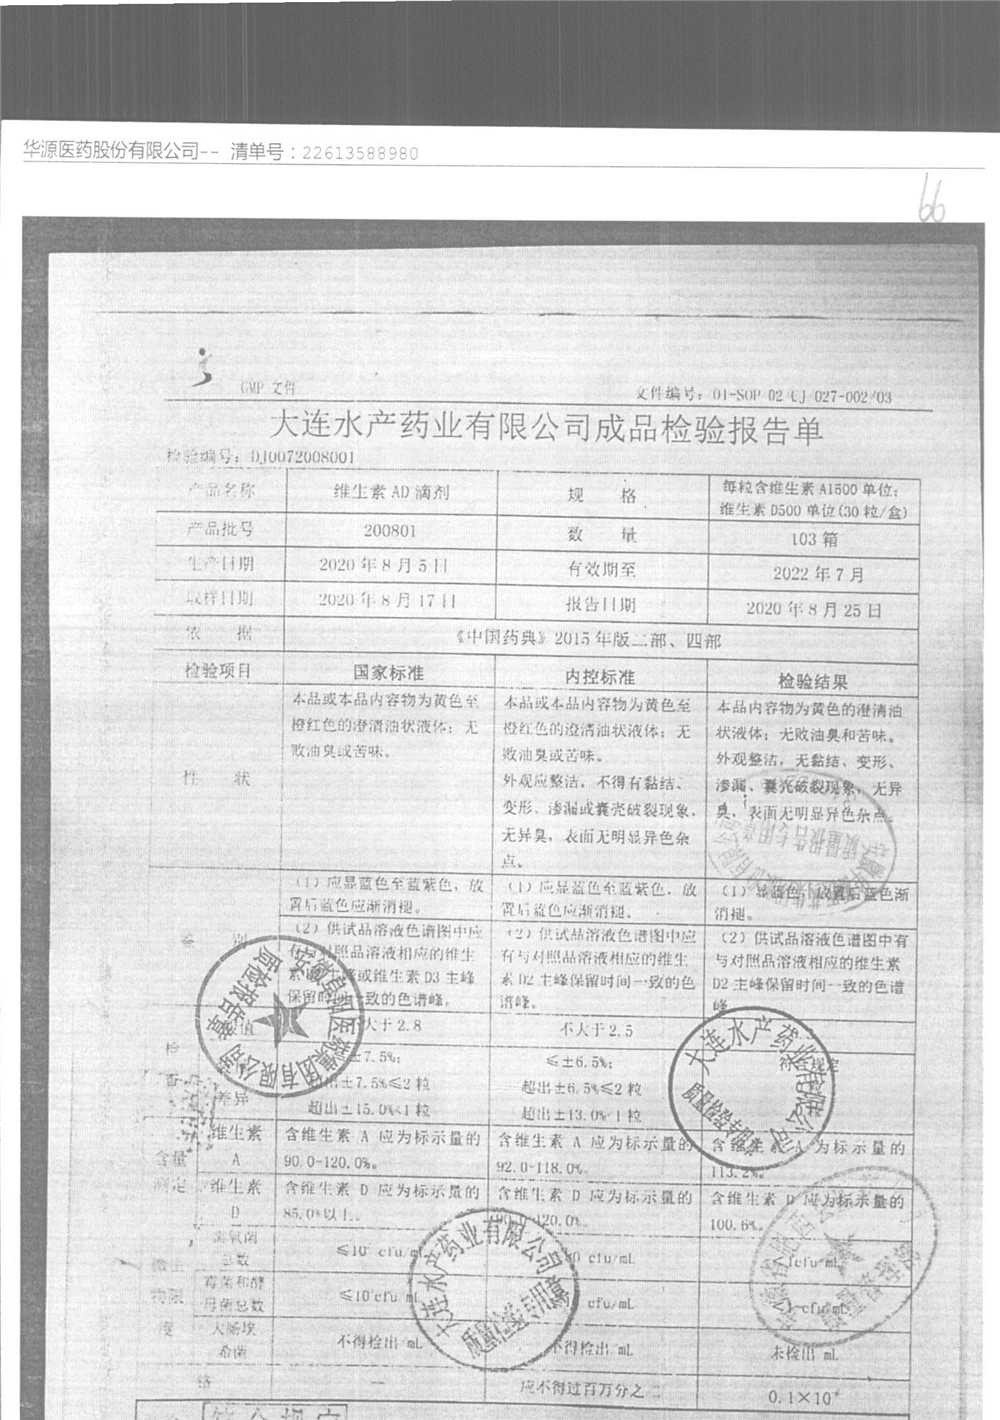 华源医药股份有限公司-- 清单号：22613588980
66
GMP 文件
文件编号：01-SOP 02 CJ 027-002/03
大连水产药业有限公司成品检验报告单
检验编号：DJ0072008001
产品名称 维生素 AD 滴剂 规 格 每粒含维生素 A1500 单位；
维生素 D500 单位(30 粒/盒)
产品批号 200801 数 量 103 箱
生产日期 2020 年 8 月 5 日 有效期至 2022 年 7 月
取样日期 2020 年 8 月 17 日 报告日期 2020 年 8 月 25 日
依 据 《中国药典》2015 年版二部、四部
检验项目 国家标准 内控标准 检验结果
性 状
本品或本品内容物为黄色至
橙红色的澄清油状液体；无
败油臭或苦味。
本品或本品内容物为黄色至
橙红色的澄清油状液体；无
败油臭或苦味。
外观应整洁，不得有黏结、
变形、渗漏或囊壳破裂现象，
无异臭，表面无明显异色杂
点。
本品内容物为黄色的澄清油
状液体；无败油臭和苦味。
外观整洁，无黏结、变形、
渗漏、囊壳破裂现象，无异
臭，表面无明显异色杂点。
鉴 别
（1）应显蓝色至蓝紫色，放
置后蓝色应渐消褪。
（1）应显蓝色至蓝紫色，放
置后蓝色应渐消褪。
（1）显蓝色，放置后蓝色渐
消褪。
（2）供试品溶液色谱图中应
有与对照品溶液相应的维生
或维生素 D3 主峰
保留时间一致的色谱峰。
（2）供试品溶液色谱图中应
有与对照品溶液相应的维生
素 D2 主峰保留时间一致的色
谱峰。
（2）供试品溶液色谱图中有
与对照品溶液相应的维生素
D2 主峰保留时间一致的色谱
峰
检
查
大于 2.8 不大于 2.5
差异
±7.5%；
超出±7.5%≤2 粒
超出±15.0%<1 粒
≤±6.5%；
超出±6.5%≤2 粒
超出±13.0% 1 粒
符合规定
含量
测定
维生素
A
含维生素 A 应为标示量的
90.0-120.0%。
含维生素 A 应为标示量的
92.0-118.0%。
含维生素 A 为标示量的
113.2%。
维生素
D
含维生素 D 应为标示量的
85.0%以上。
含维生素 D 应为标示量的
120.0%。
含维生素 D 应为标示量的
100.6%。
微生
物限
度
需氧菌
总数
cfu/mL
霉菌和酵
母菌总数
cfu/mL
大肠埃
希菌
不得检出/mL 不得检出/mL 未检出/mL
铬 — 应不得过百万分之二
符合规定
大连水产药业有限公司
质量检验专用章
大连水产药业有限公司